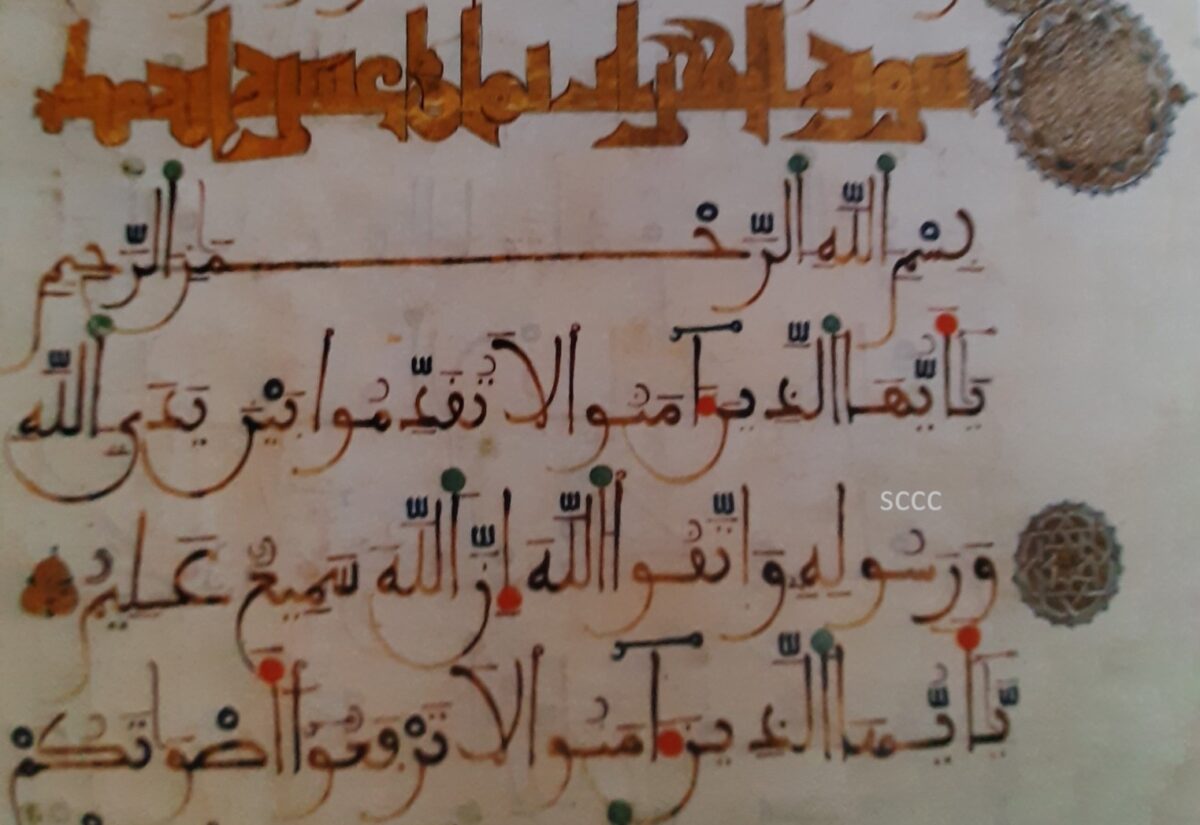 سورة الحجرات
بِسْمِ اللَّهِ الرَّحْمَنِ الرَّحِيمِ
يَا أَيُّهَا الَّذِينَ آمَنُوا لَا تُقَدِّمُوا بَيْنَ يَدَيِ اللَّهِ
وَرَسُولِهِ وَاتَّقُوا اللَّهَ إِنَّ اللَّهَ سَمِيعٌ عَلِيمٌ
sccc
يَا أَيُّهَا الَّذِينَ آمَنُوا لَا تَرْفَعُوا أَصْوَاتَكُمْ